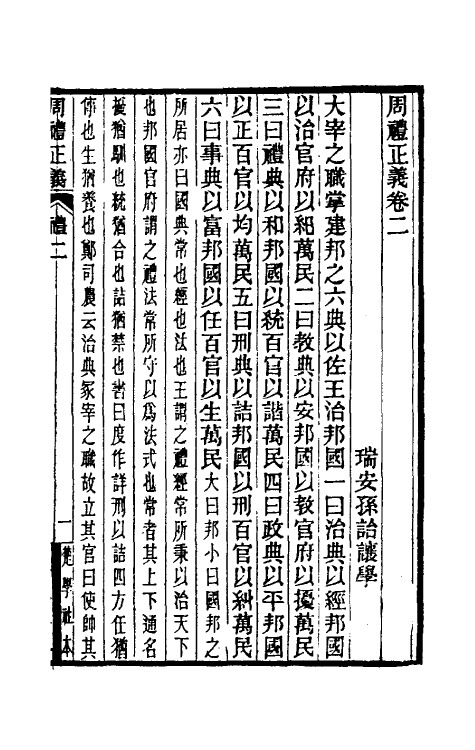 周禮正義卷二
瑞安孫詒讓學
大宰之職掌建邦之六典以佐王治邦國一曰治典以經邦國
以治官府以紀萬民二曰教典以安邦國以教官府以擾萬民
三曰禮典以和邦國以統百官以諧萬民四曰政典以平邦國
以正百官以均萬民五曰刑典以詰邦國以刑百官以糾萬民
六曰事典以富邦國以任百官以生萬民大曰邦小曰國邦之
所居亦曰國典常也經也法也王謂之禮經常所秉以治天下
也邦國官府謂之禮法常所守以爲法式也常者其上下通名
擾猶馴也統猶合也詰猶禁也書曰度作詳刑以詰四方任猶
倳也生猶養也鄭司農云治典冢宰之職故立其官曰使帥其
周禮正義
禮二
一
楚學社本